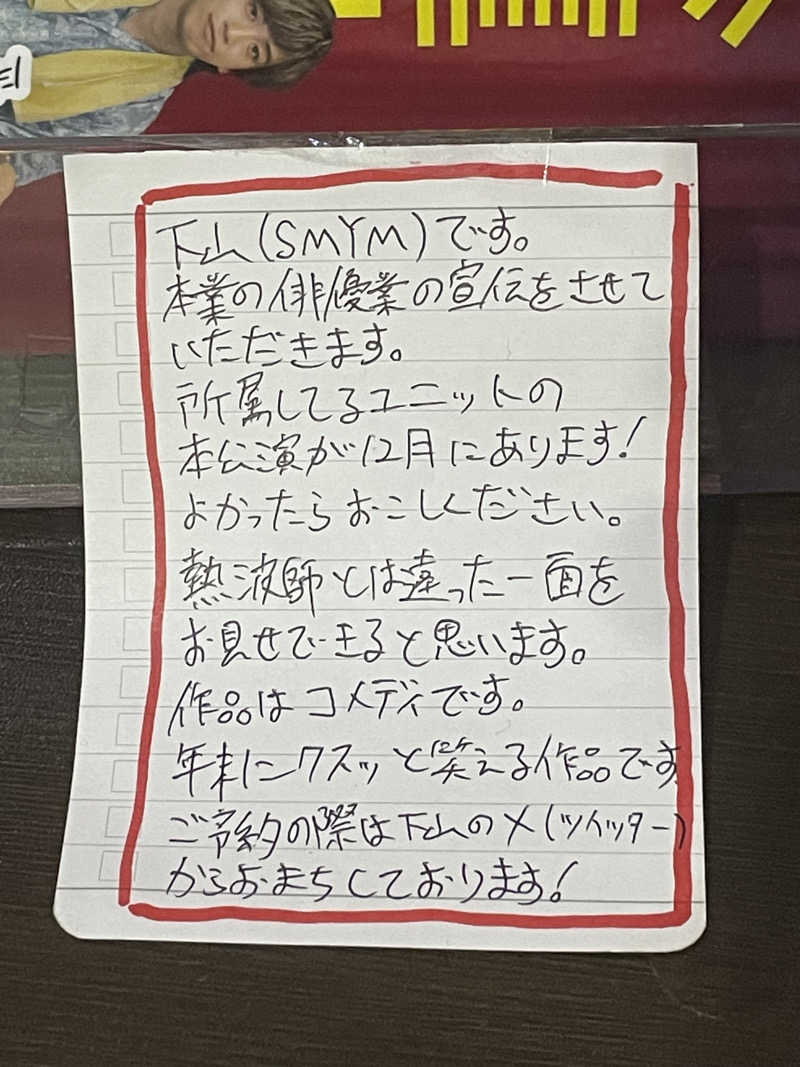 下山(SMYM)です。
本業の俳優業の宣伝をさせて
いただきます。
所属してるユニットの
本公演が12月にあります!
よかったらおこしください。
熱波師とは違った一面を
お見せできると思います。
作品はコメディです。
年末にクスッと笑える作品です
ご予約の際は下山のX(ツイッター)
からおまちしております!